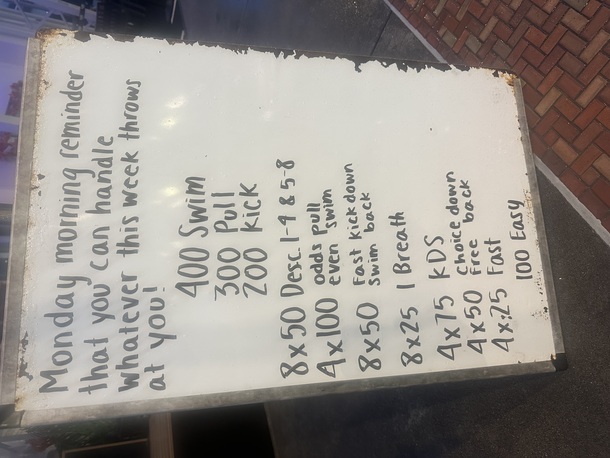 Monday morning reminder
that you can handle
whatever this week throws
at you!
400 Swim
300 Pull
200 Kick
8x50 Desc. 1-4 & 5-8
4x100 odds pull
even swim
8x50 Fast kick down
Swim back
8x25 1 Breath
4x75 KDS
4x50 Choice down
Free back
4x25 Fast
100 Easy